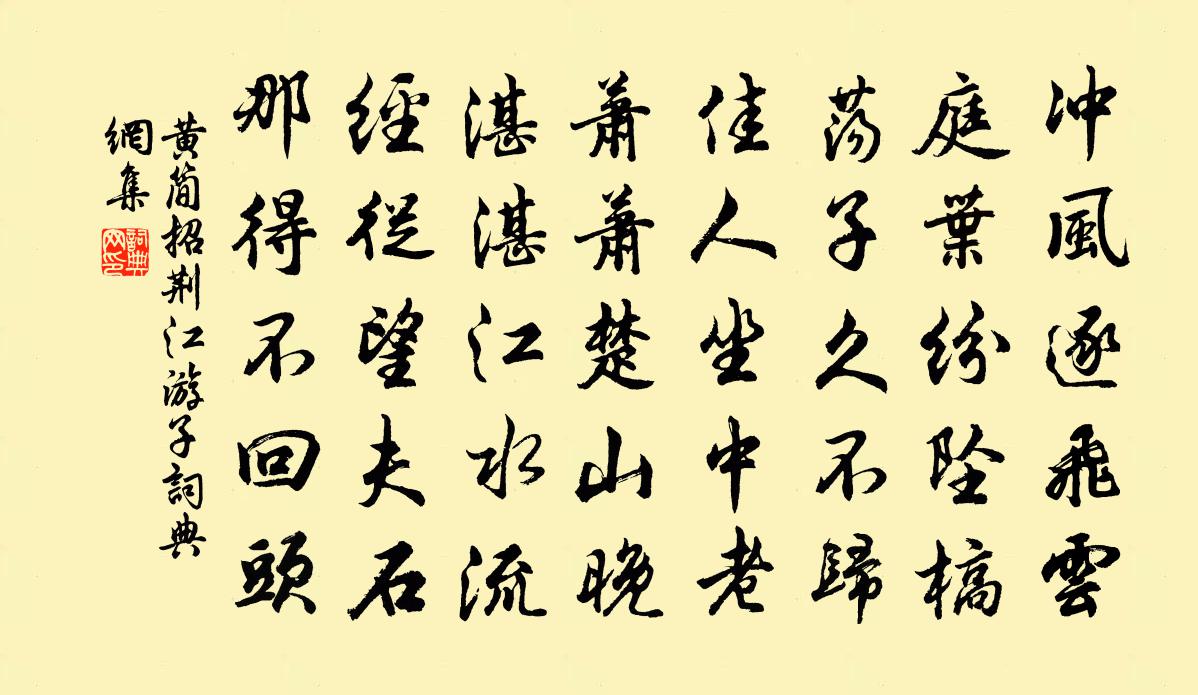 冲風逐飛雲
庭葉紛墜槁
蕩子久不歸
佳人坐中老
蕭蕭楚山晚
湛湛江水流
經從望夫石
那得不回頭
黄简招荆江游子詞典
網集
詞典網印